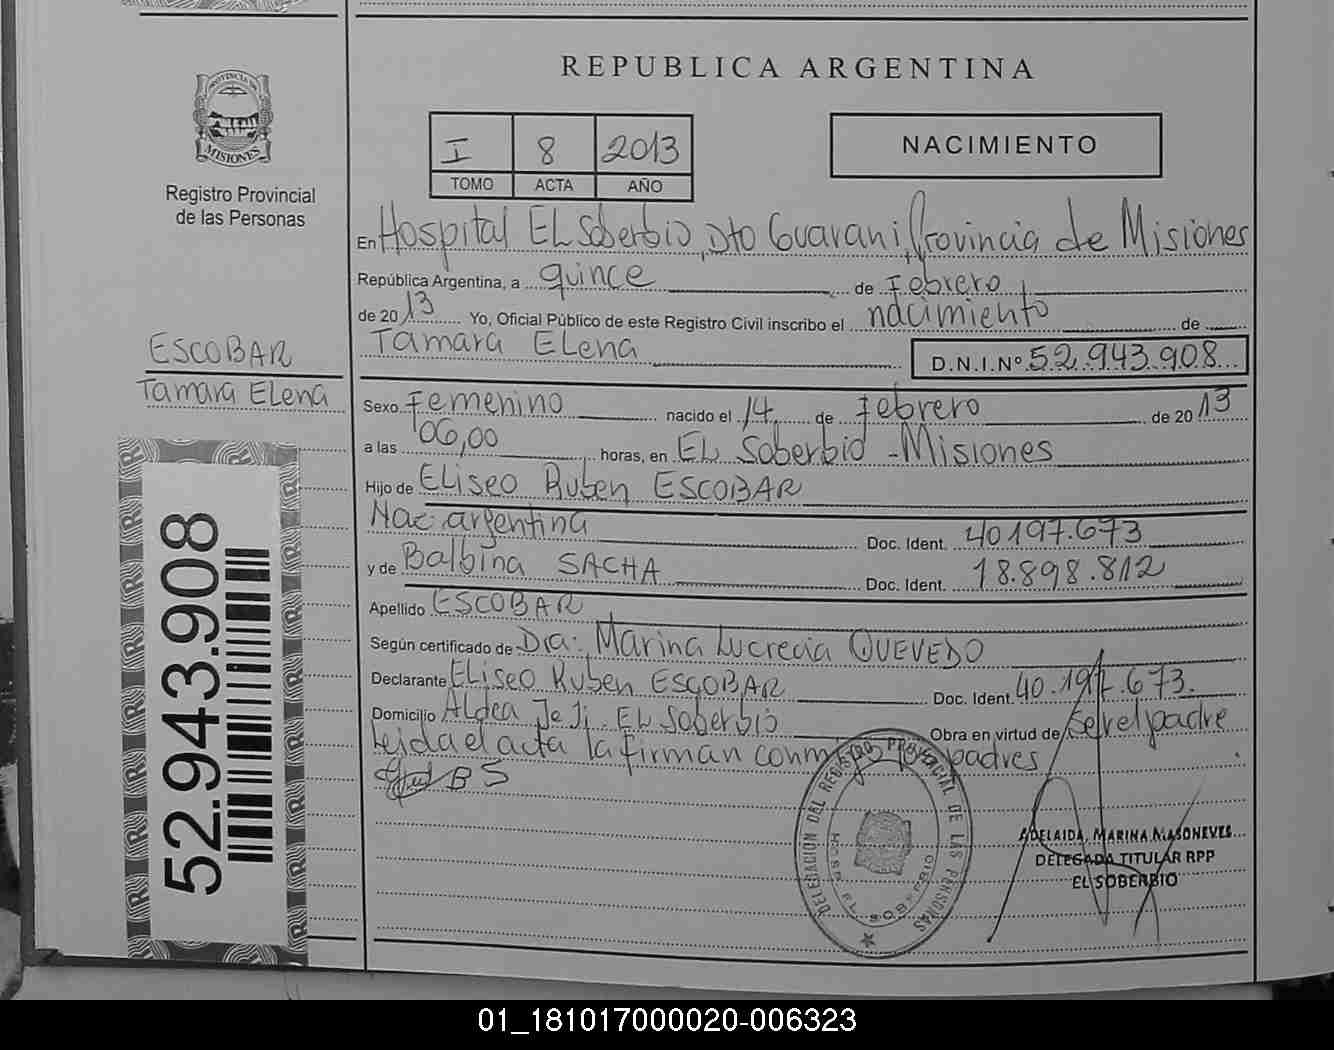 REPUBLICA ARGENTINA
PROVINCIA DE
MISIONES
Registro Provincial
de las Personas
I 8 2013
TOMO ACTA AÑO
NACIMIENTO
En Hospital EL Soberbio, Dto Guarani, Provincia de Misiones
República Argentina, a quince de Febrero
de 2013 Yo, Oficial Público de este Registro Civil inscribo el nacimiento de
Tamara ELena D.N.I.Nº 52.943.908
ESCOBAR
Tamara ELena
Sexo Femenino nacido el 14 de febrero de 2013
a las 06,00 horas, en EL Soberbio - Misiones
Hijo de ELiseo Ruben ESCOBAR
Nac. argentina Doc. Ident. 40197.673
y de Balbina SACHA Doc. Ident. 18.898.812
Apellido ESCOBAR
Según certificado de Dra: Marina Lucrecia QUEVEDO
Declarante ELiseo Ruben ESCOBAR Doc. Ident. 40.197.673.
Domicilio Aldea Jeji. EL Soberbio Obra en virtud de ser el padre
Leida el acta la firman conmigo padres
BS
52.943.908
DELEGACION DEL REGISTRO PROVINCIAL DE LAS PERSONAS
HOSP. EL SOBERBIO
ADELAIDA MARINA MASONEVES
DELEGADA TITULAR RPP
EL SOBERBIO
01_181017000020-006323